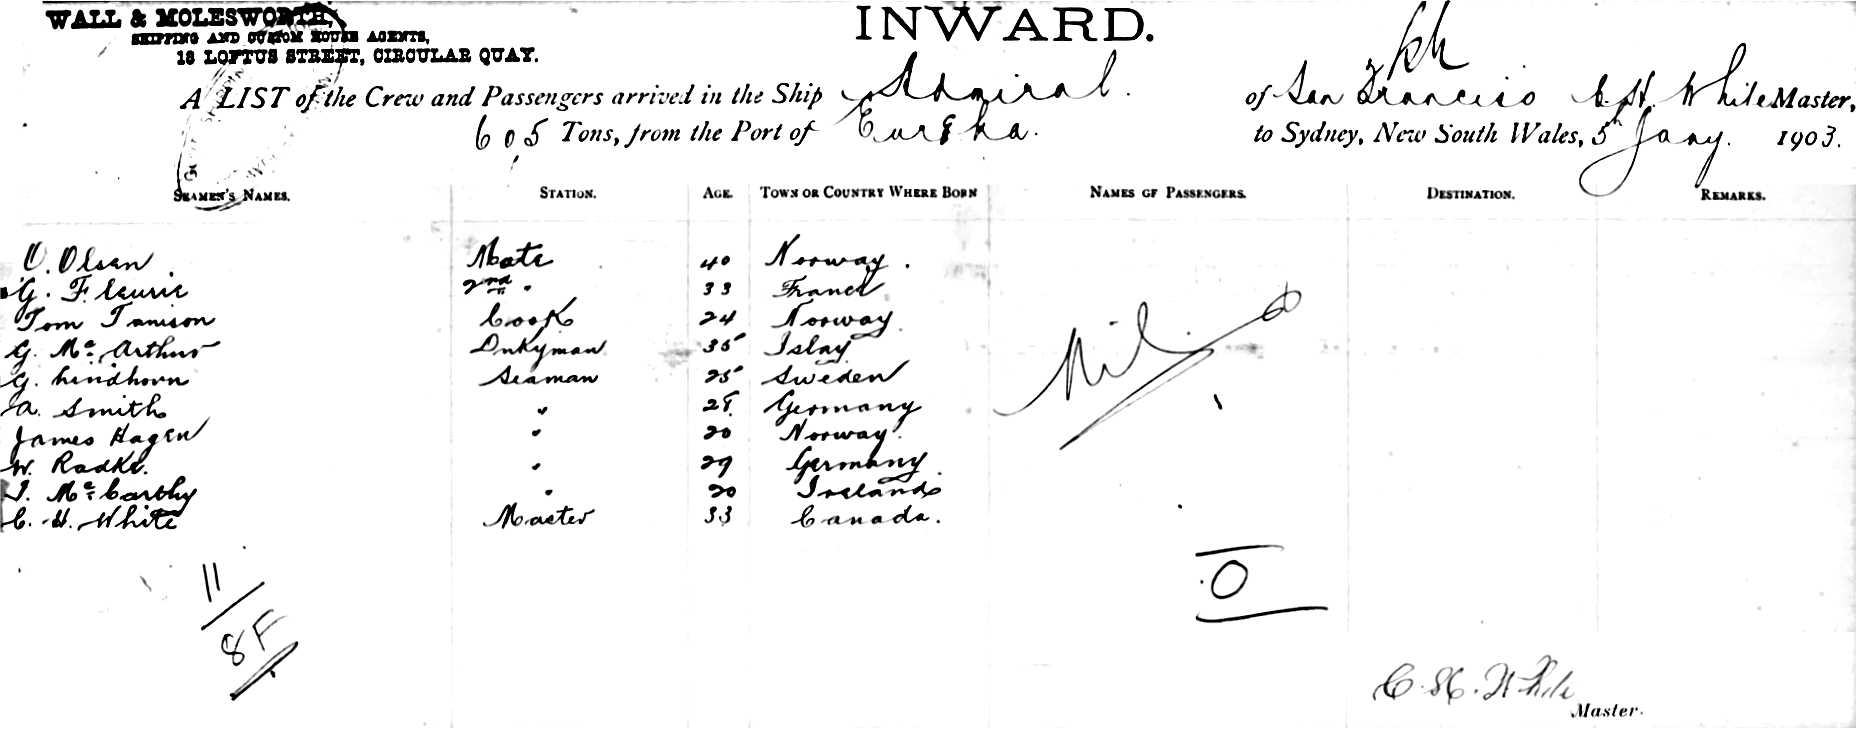 WALL & MOLESWORTH,
SHIPPING AND CUSTOM HOUSE AGENTS,
18 LOFTUS STREET, CIRCULAR QUAY.
INWARD.
A LIST of the Crew and Passengers arrived in the Ship Admiral. of San Francisco C. H. White Master,
605 Tons, from the Port of Eureka. to Sydney, New South Wales, 5th Jany. 1903.
SEAMEN'S NAMES. STATION. AGE. TOWN OR COUNTRY WHERE BORN NAMES OF PASSENGERS. DESTINATION. REMARKS.
O. Olsen. Mate 40 Norway.
G. Fleurie 2nd " 33 France
Tom Tamison Cook 24 Norway
G. McArthur Dnkyman 35 Islay
G. Lindhorn Seaman 25 Sweden
A. Smith " 28 Germany
James Hagen " 20 Norway.
W. Radke. " 29 Germany.
J. McCarthy " 20 Ireland
C. H. White Master 33 Canada.
Nil
11
8F
0
C. H. White
Master.